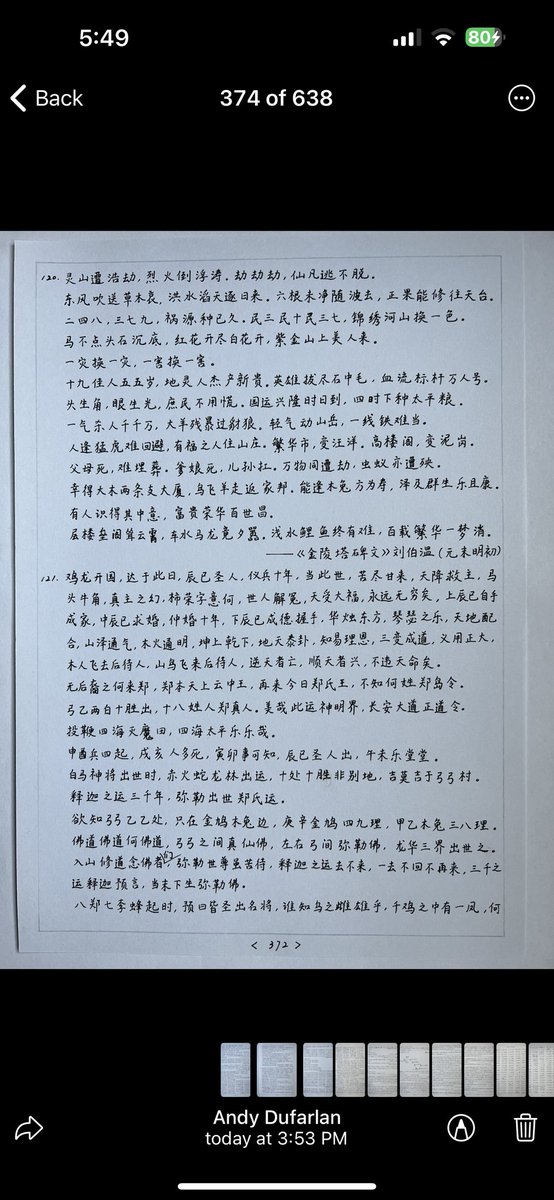 5:49
80
Back
374 of 638
120. 灵山遭浩劫，烈火倒浮涛。劫劫劫，仙凡逃不脱。
东风吹送草木哀，洪水滔天逐日来。六根未净随波去，正果能修往天台。
二四八，三七九，祸源种已久。民三民十民三七，锦绣河山换一色。
马不点头石沉底，红花开尽白花开，紫金山上美人来。
一灾换一灾，一害换一害。
十九佳人五五岁，地灵人杰产新贵。英雄拔尽石中毛，血流标杆万人号。
头生角，眼生光，庶民不用慌。国运兴隆时日到，四时下种太平粮。
一气杀人千千万，大羊残暴过豺狼。轻气动山岳，一线铁难当。
人逢猛虎难回避，有福之人住山庄。繁华市，变汪洋。高楼阁，变泥岗。
父母死，难埋葬。爹娘死，儿孙扛。万物同遭劫，虫蚁亦遭殃。
幸得大木两条支大厦，乌飞羊走返家邦。能逢木兔方为寿，泽及群生乐且康。
有人识得其中意，富贵荣华百世昌。
层楼垒阁耸云霄，车水马龙竟夕嚣。浅水鲤鱼终有难，百载繁华一梦消。
——《金陵塔碑文》刘伯温（元末明初）
121. 鸡龙开国，达于此日，辰巳圣人，仪兵十年，当此世，苦尽甘来，天降救主，马
头牛角，真主之幻，柿荣字意何，世人解冤，天受大福，永远无穷矣，上辰巳自手
成家，中辰巳求婚，仲婚十年，下辰巳成德握手，华烛东方，琴瑟之乐，天地配
合，山泽通气，木火通明，坤上乾下，地天泰卦，知易理恩，三变成道，义用正大，
木人飞去后待人，山鸟飞来后待人，逆天者亡，顺天者兴，不违天命矣。
无后裔之何来郑，郑本天上云中王，再来今日郑氏王，不知何姓郑鸟令。
弓乙两白十胜出，十八姓人郑真人。美哉此运神明界，长安大道正道令。
投鞭四海灭魔田，四海太平乐乐哉。
申酉兵四起，戌亥人多死，寅卯事可知，辰巳圣人出，午未乐堂堂。
白马神将出世时，赤火蛇龙林出运，十处十胜非别地，吉莫吉于弓弓村。
释迦之运三千年，弥勒出世郑氏运。
欲知弓弓乙乙处，只在金鸠木兔边，庚辛金鸠四九理，甲乙木兔三八理。
佛道佛道何佛道，弓弓之间真仙佛，左右弓间弥勒佛，龙华三界出世之。
入山修道念佛者们，弥勒世尊虽苦待，释迦之运去不来，一去不回不再来，三千之
运释迦预言，当末下生弥勒佛。
八郑七李蜂起时，预曰皆圣出名将，谁知乌之雌雄乎，千鸡之中有一凤，何
< 372 >
Andy Dufarlan
today at 3:53 PM